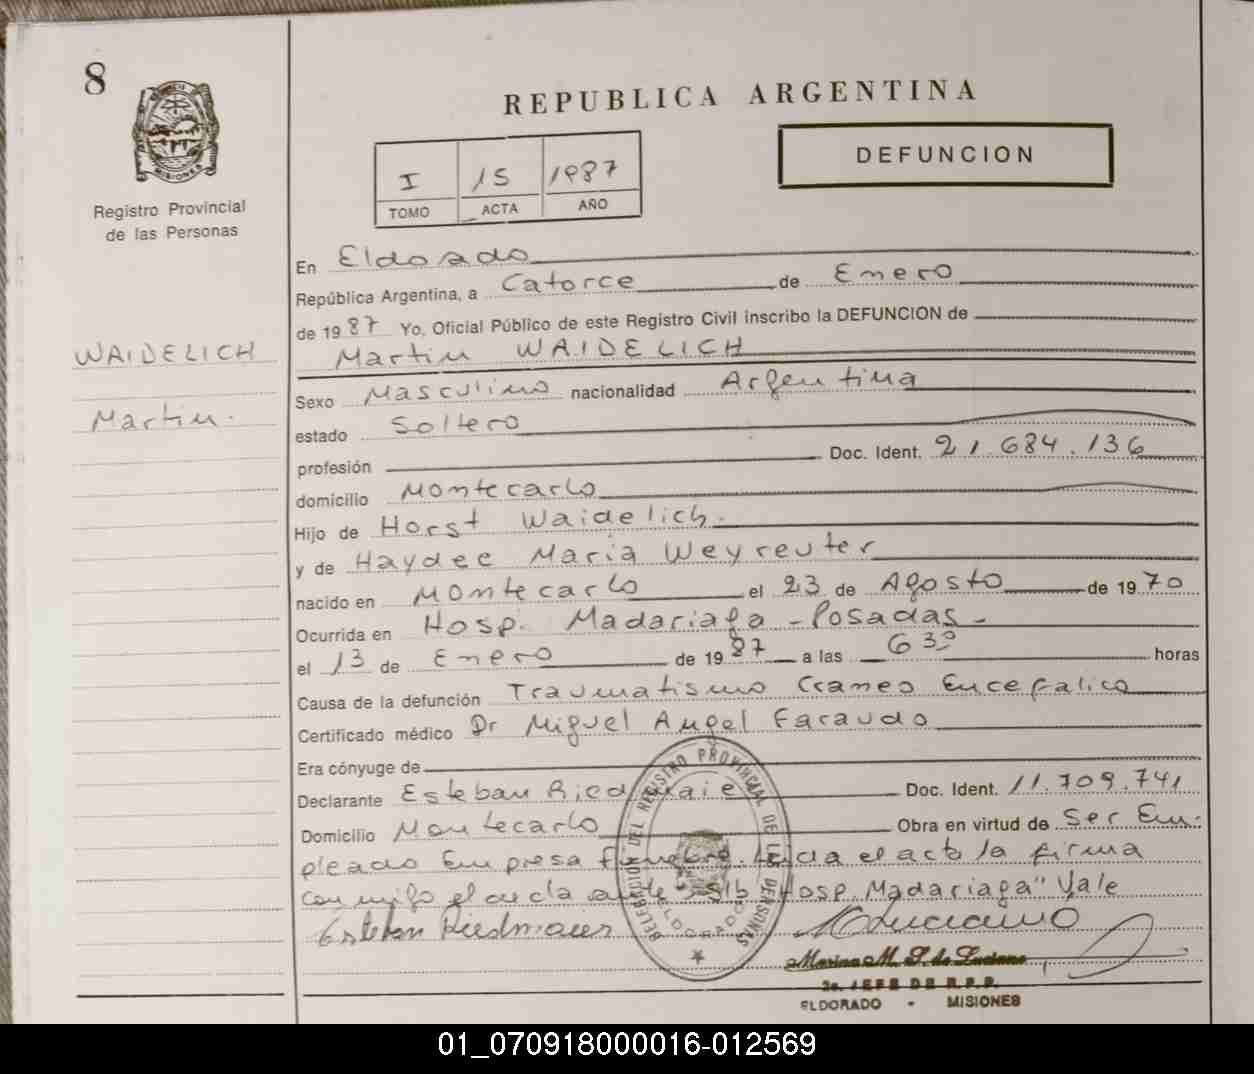 8
MISIONES
Registro Provincial
de las Personas
WAIDELICH
Martin.
REPUBLICA ARGENTINA
I 15 1987
TOMO ACTA AÑO
DEFUNCION
En Eldorado
República Argentina, a Catorce de Enero
de 1987 Yo, Oficial Público de este Registro Civil inscribo la DEFUNCION de
Martin WAIDELICH
Sexo Masculino nacionalidad Argentina
estado Soltero
profesión Doc. Ident. 21.684.136
domicilio Montecarlo
Hijo de Horst Waidelich.
y de Haydee Maria Weyreuter
nacido en Montecarlo el 23 de Agosto de 1970
Ocurrida en Hosp. Madariaga - Posadas -
el 13 de Enero de 1987 a las 6 30 horas
Causa de la defunción Traumatismo Craneo Encefalico
Certificado médico Dr Miguel Angel Faraudo
Era cónyuge de
Declarante Esteban Riedmaier Doc. Ident. 11.709.741
Domicilio Montecarlo Obra en virtud de Ser Em-
pleado Empresa funebre. Leida el acta la firma
conmigo el declarante S/b "Hosp. Madariaga" Vale
Esteban Riedmaier
DELEGACION DEL REGISTRO PROVINCIAL DE LAS PERSONAS
ELDORADO
Marina M. de Luciano
2o. JEFE DE R.P.P.
ELDORADO - MISIONES
01_070918000016-012569